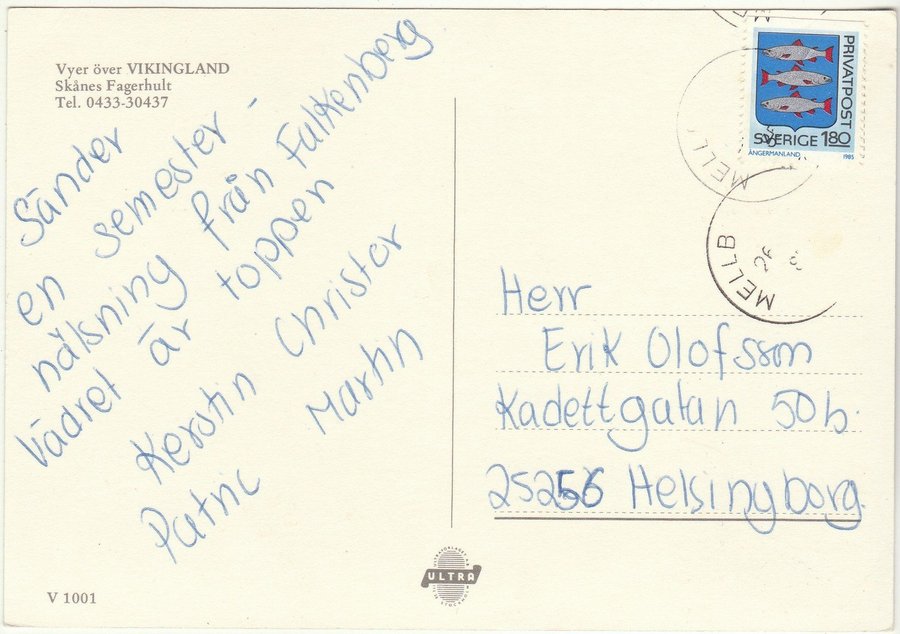 Vyer över VIKINGLAND
Skånes Fagerhult
Tel. 0433-30437
Sänder
en semester-
hälsning från Falkenberg
Vädret är toppen
Kerstin Christer
Patric Martin
PRIVATPOST
SVERIGE 180
ÅNGERMANLAND 1985
MELL
MELLB
26
Herr
Erik Olofsson
Kadettgatan 50 b.
25256 Helsingborg
ULTRA
V 1001